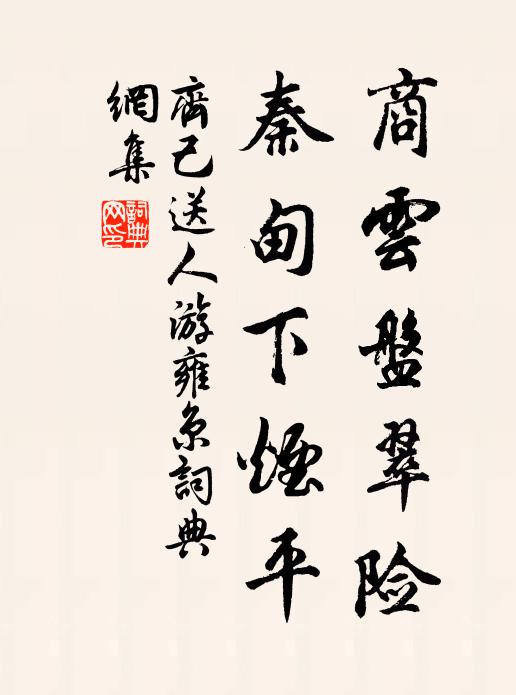 商雲盤翠险
秦甸下煙平
齊己送人游雍京詞典
網集
詞典
网印